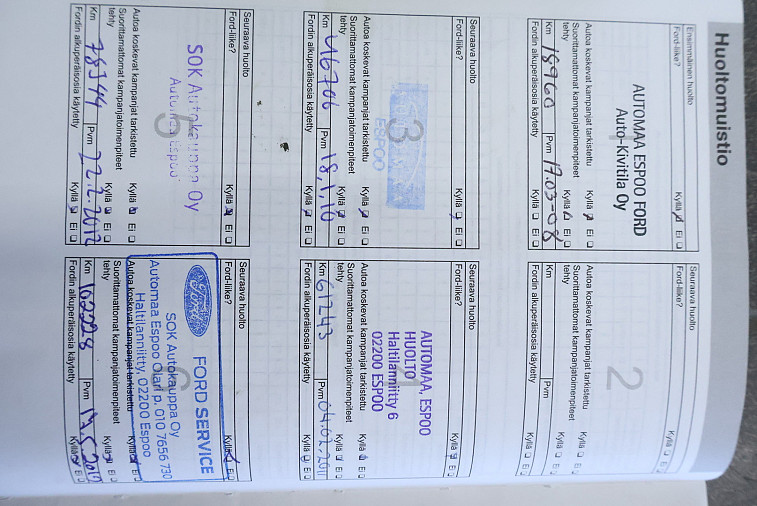 Huoltomuistio
Ensimmäinen huolto
Ford-liike? Kyllä Ei
AUTOMAA ESPOO FORD
Auto-Kivitila Oy
Autoa koskevat kampanjat tarkistettu Kyllä Ei
Suorittamattomat kampanjatoimenpiteet
tehty Kyllä Ei
Km 18960 Pvm 17.03-08
Fordin alkuperäisosia käytetty Kyllä Ei
Seuraava huolto
Ford-liike? Kyllä Ei
2
Autoa koskevat kampanjat tarkistettu Kyllä Ei
Suorittamattomat kampanjatoimenpiteet
tehty Kyllä Ei
Km Pvm
Fordin alkuperäisosia käytetty Kyllä Ei
Seuraava huolto
Ford-liike? Kyllä Ei
3
ESPOO
Autoa koskevat kampanjat tarkistettu Kyllä Ei
Suorittamattomat kampanjatoimenpiteet
tehty Kyllä Ei
Km 46706 Pvm 18.1.10
Fordin alkuperäisosia käytetty Kyllä Ei
Seuraava huolto
Ford-liike? Kyllä Ei
AUTOMAA, ESPOO
HUOLTO
Haltilanniitty 6
02200 ESPOO
Autoa koskevat kampanjat tarkistettu Kyllä Ei
Suorittamattomat kampanjatoimenpiteet
tehty Kyllä Ei
Km 61243 Pvm 04.02.2011
Fordin alkuperäisosia käytetty Kyllä Ei
Seuraava huolto
Ford-liike? Kyllä Ei
SOK Autokauppa Oy
Automaa Espoo
5
Autoa koskevat kampanjat tarkistettu Kyllä Ei
Suorittamattomat kampanjatoimenpiteet
tehty Kyllä Ei
Km 78344 Pvm 22.2.2012
Fordin alkuperäisosia käytetty Kyllä Ei
Seuraava huolto
Ford-liike? Kyllä Ei
Ford FORD SERVICE
SOK Autokauppa Oy
Automaa Espoo Olari p. 010 7656 730
Haltilanniitty, 02200 Espoo
6
Autoa koskevat kampanjat tarkistettu Kyllä Ei
Suorittamattomat kampanjatoimenpiteet
tehty Kyllä Ei
Km Pvm
Fordin alkuperäisosia käytetty Kyllä Ei